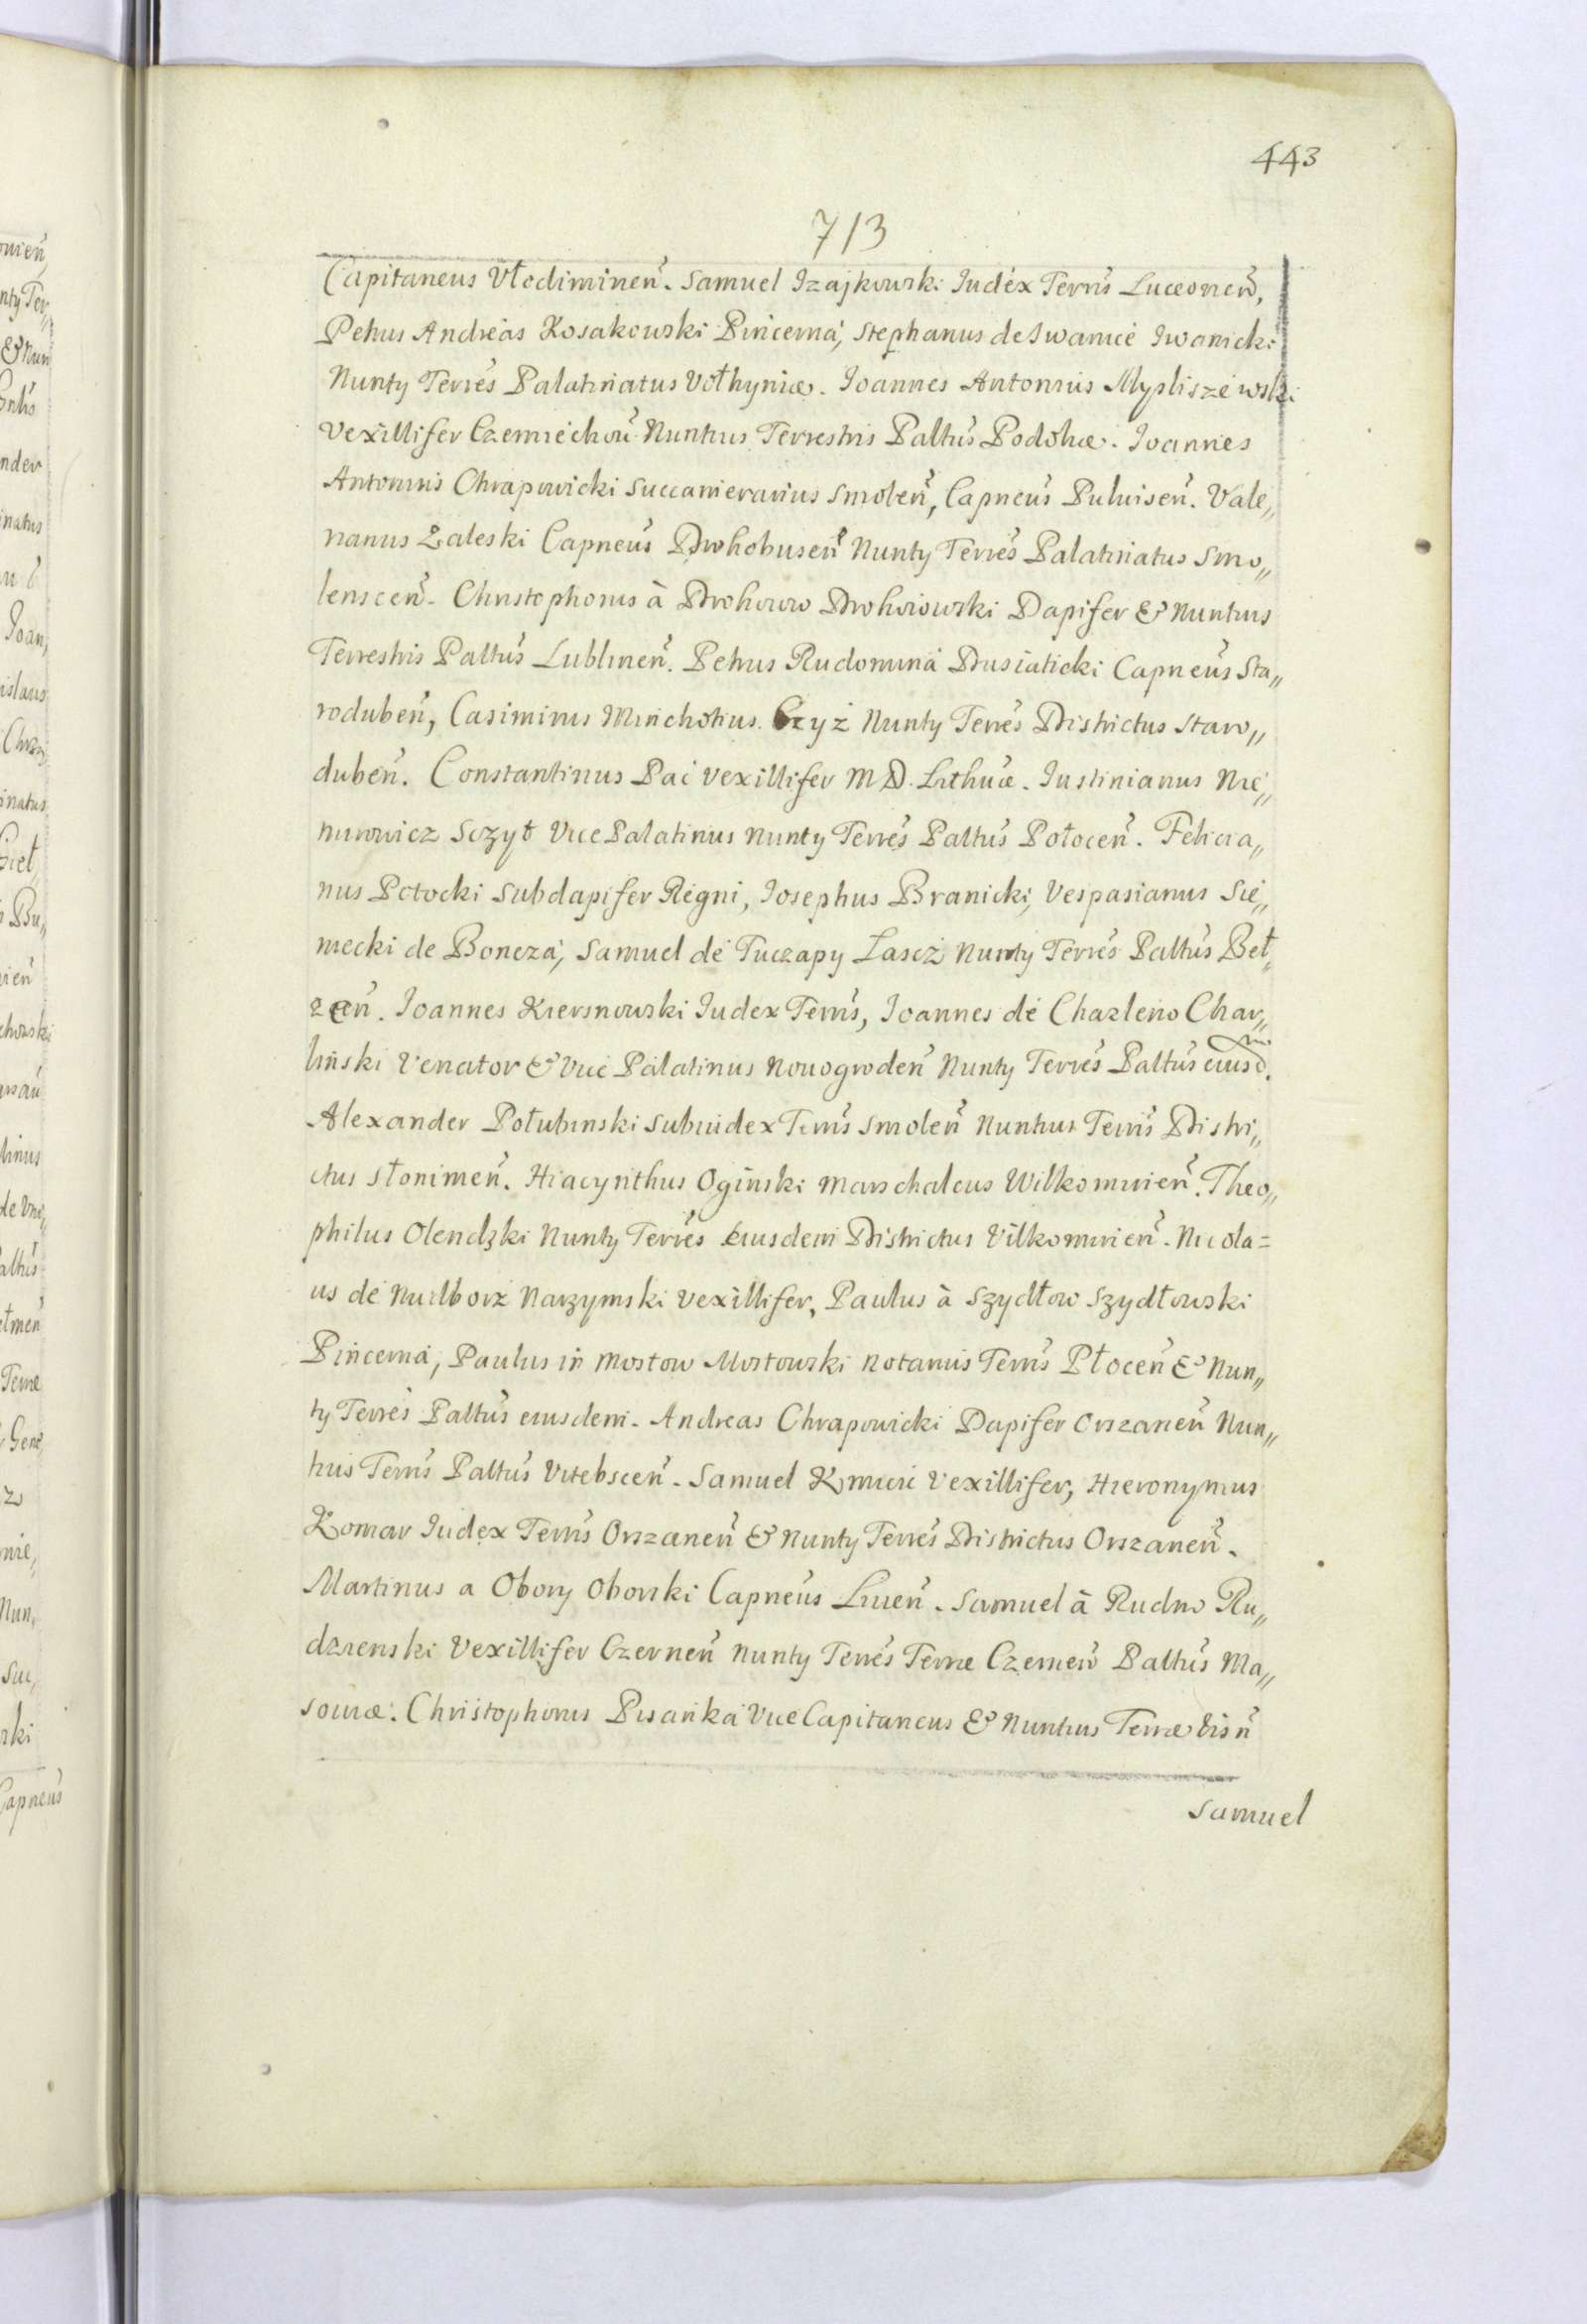 443
713
Capitaneus Vłodimirień. Samuel Izajkowski Iudex Terrīs Luceorień,
Petrus Andreas Kosakowski Pincerna, Stephanus de Iwanice Iwanicki
Nuntÿ Terrēs Palatinatus Vołhyniæ. Ioannes Antonius Mypliszewski
Vexillifer Czerniechoū Nuntius Terrestris Paltūs Podoliæ. Ioannes
Antonius Chrapowicki Succamerarius Smoleń, Capneūs Puluiseń. Vale„
rianus Zaleski Capneūs Drohobuseń Nuntÿ Terrēs Palatinatus Smo„
lensceń. Christophorus à Drohowo Drohoiowski Dapifer & Nuntius
Terrestris Paltūs Lublineń. Petrus Rudomina Dusiaticki Capneūs Sta„
rodubeń, Casimirus Minchotius Czyż Nuntÿ Terrēs Districtus Staro„
dubeń. Constantinus Pac Vexillifer M D. Lithuæ. Iustinianus Nie„
mirowicz Sczyt Vice Palatinus Nuntÿ Terrēs Paltūs Połoceń. Felicia„
nus Potocki Subdapifer Regni, Iosephus Branicki, Vespasianus Sie„
niecki de Boncza, Samuel de Tuczapy Łascz Nuntÿ Terrēs Paltūs Beł„
zeń. Ioannes Kiersnowski Iudex Terrīs, Ioannes de Chazleno Char„
liński Venator & Vice Palatinus Nouogrodeń Nuntÿ Terrēs Paltūs eiusd.
Alexander Połubinski Subiudex Terrīs Smoleń Nuntius Terrīs Distri„
ctus Słonimeń. Hiacynthus Oginski Marschalcus Wilkomirień. Theo„
philus Olendzki Nuntÿ Terrēs Eiusdem Districtus Vilkomirień. Nicola=
us de Nuilborz Narzymski Vexillifer, Paulus à Szydłow Szydłowski
Pincerna, Paulus in Mostow Mostowski Notarius Terrīs Płoceń & Nun„
tÿ Terrēs Paltūs eiusdem. Andreas Chrapowicki Dapifer Orszaneń Nun„
tius Terrīs Paltūs Vitebsceń. Samuel Kmicic Vexillifer, Hieronymus
Komar Iudex Terrīs Orszaneń & Nuntÿ Terrēs Districtus Orszaneń.
Martinus a Obory Oborski Capneūs Liueń. Samuel à Rudno Ru„
dzienski Vexillifer Czerneń Nuntÿ Terrēs Terræ Czerneń Paltūs Ma„
souiæ. Christophorus Pisanka Vice Capitaneus & Nuntius Terræ Visń
Samuel